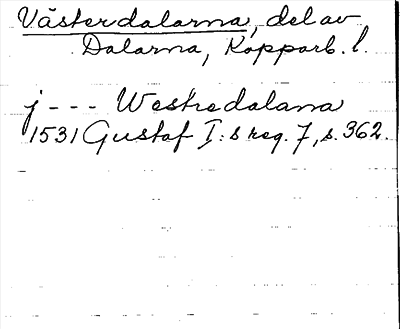 Västerdalarna, del av
Dalarna, Kopparb. l.
j - - - Westredalana
1531 Gustaf I:s reg. 7, s. 362.